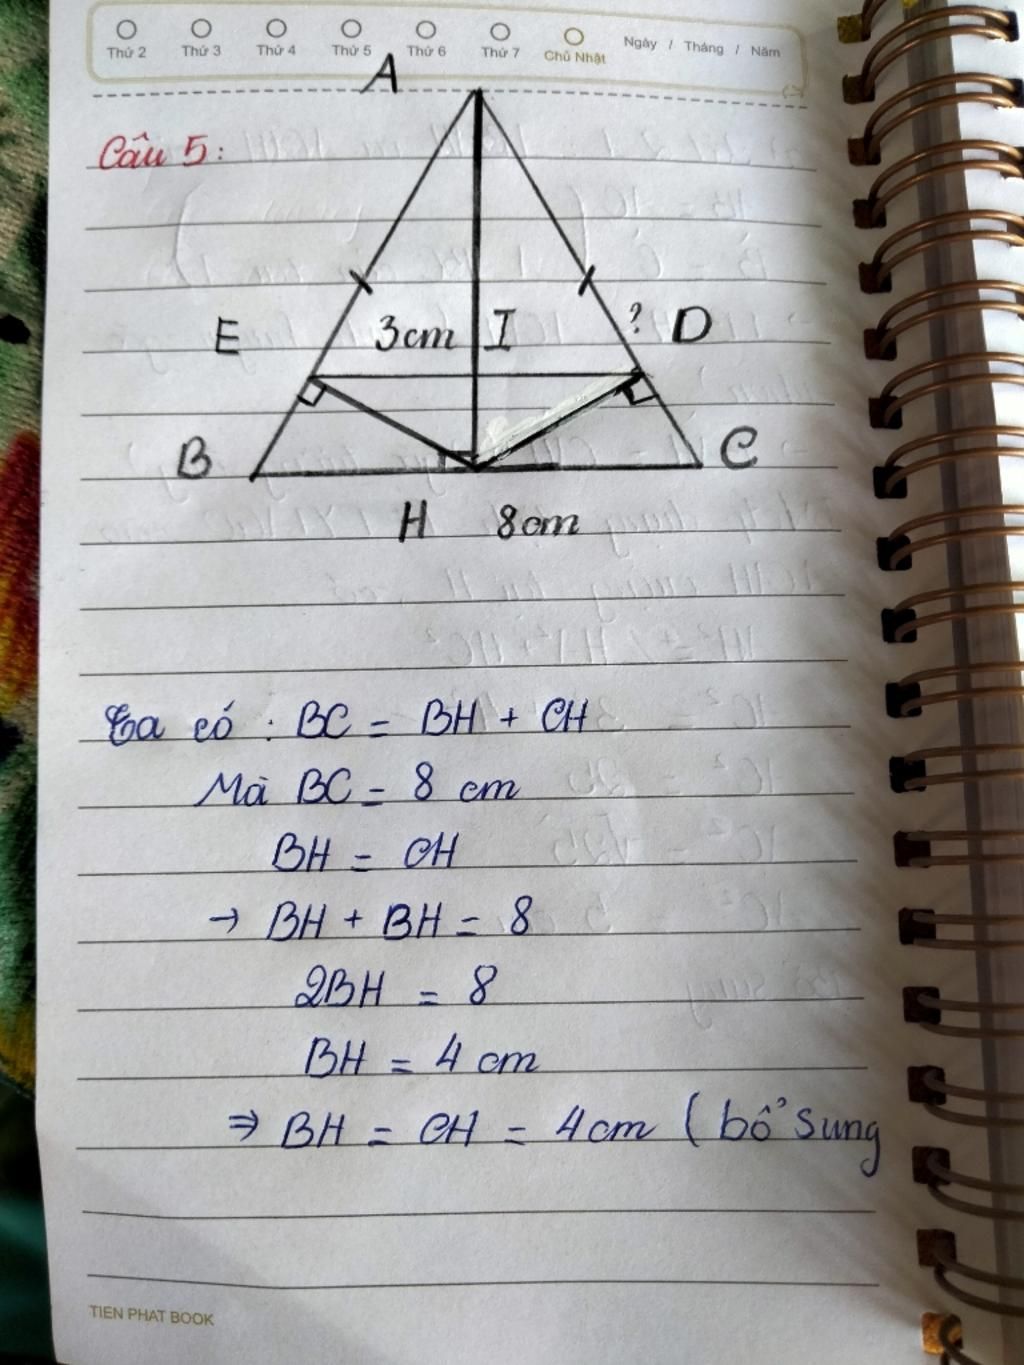 Thứ 2 Thứ 3 Thứ 4 Thứ 5 Thứ 6 Thứ 7 Chủ Nhật Ngày / Tháng / Năm
A
Câu 5:
E 3cm I ? D
B C
H 8cm
Ta có : BC = BH + CH
Mà BC = 8 cm
BH = CH
→ BH + BH = 8
2BH = 8
BH = 4 cm
⇒ BH = CH = 4cm ( bổ sung
TIEN PHAT BOOK